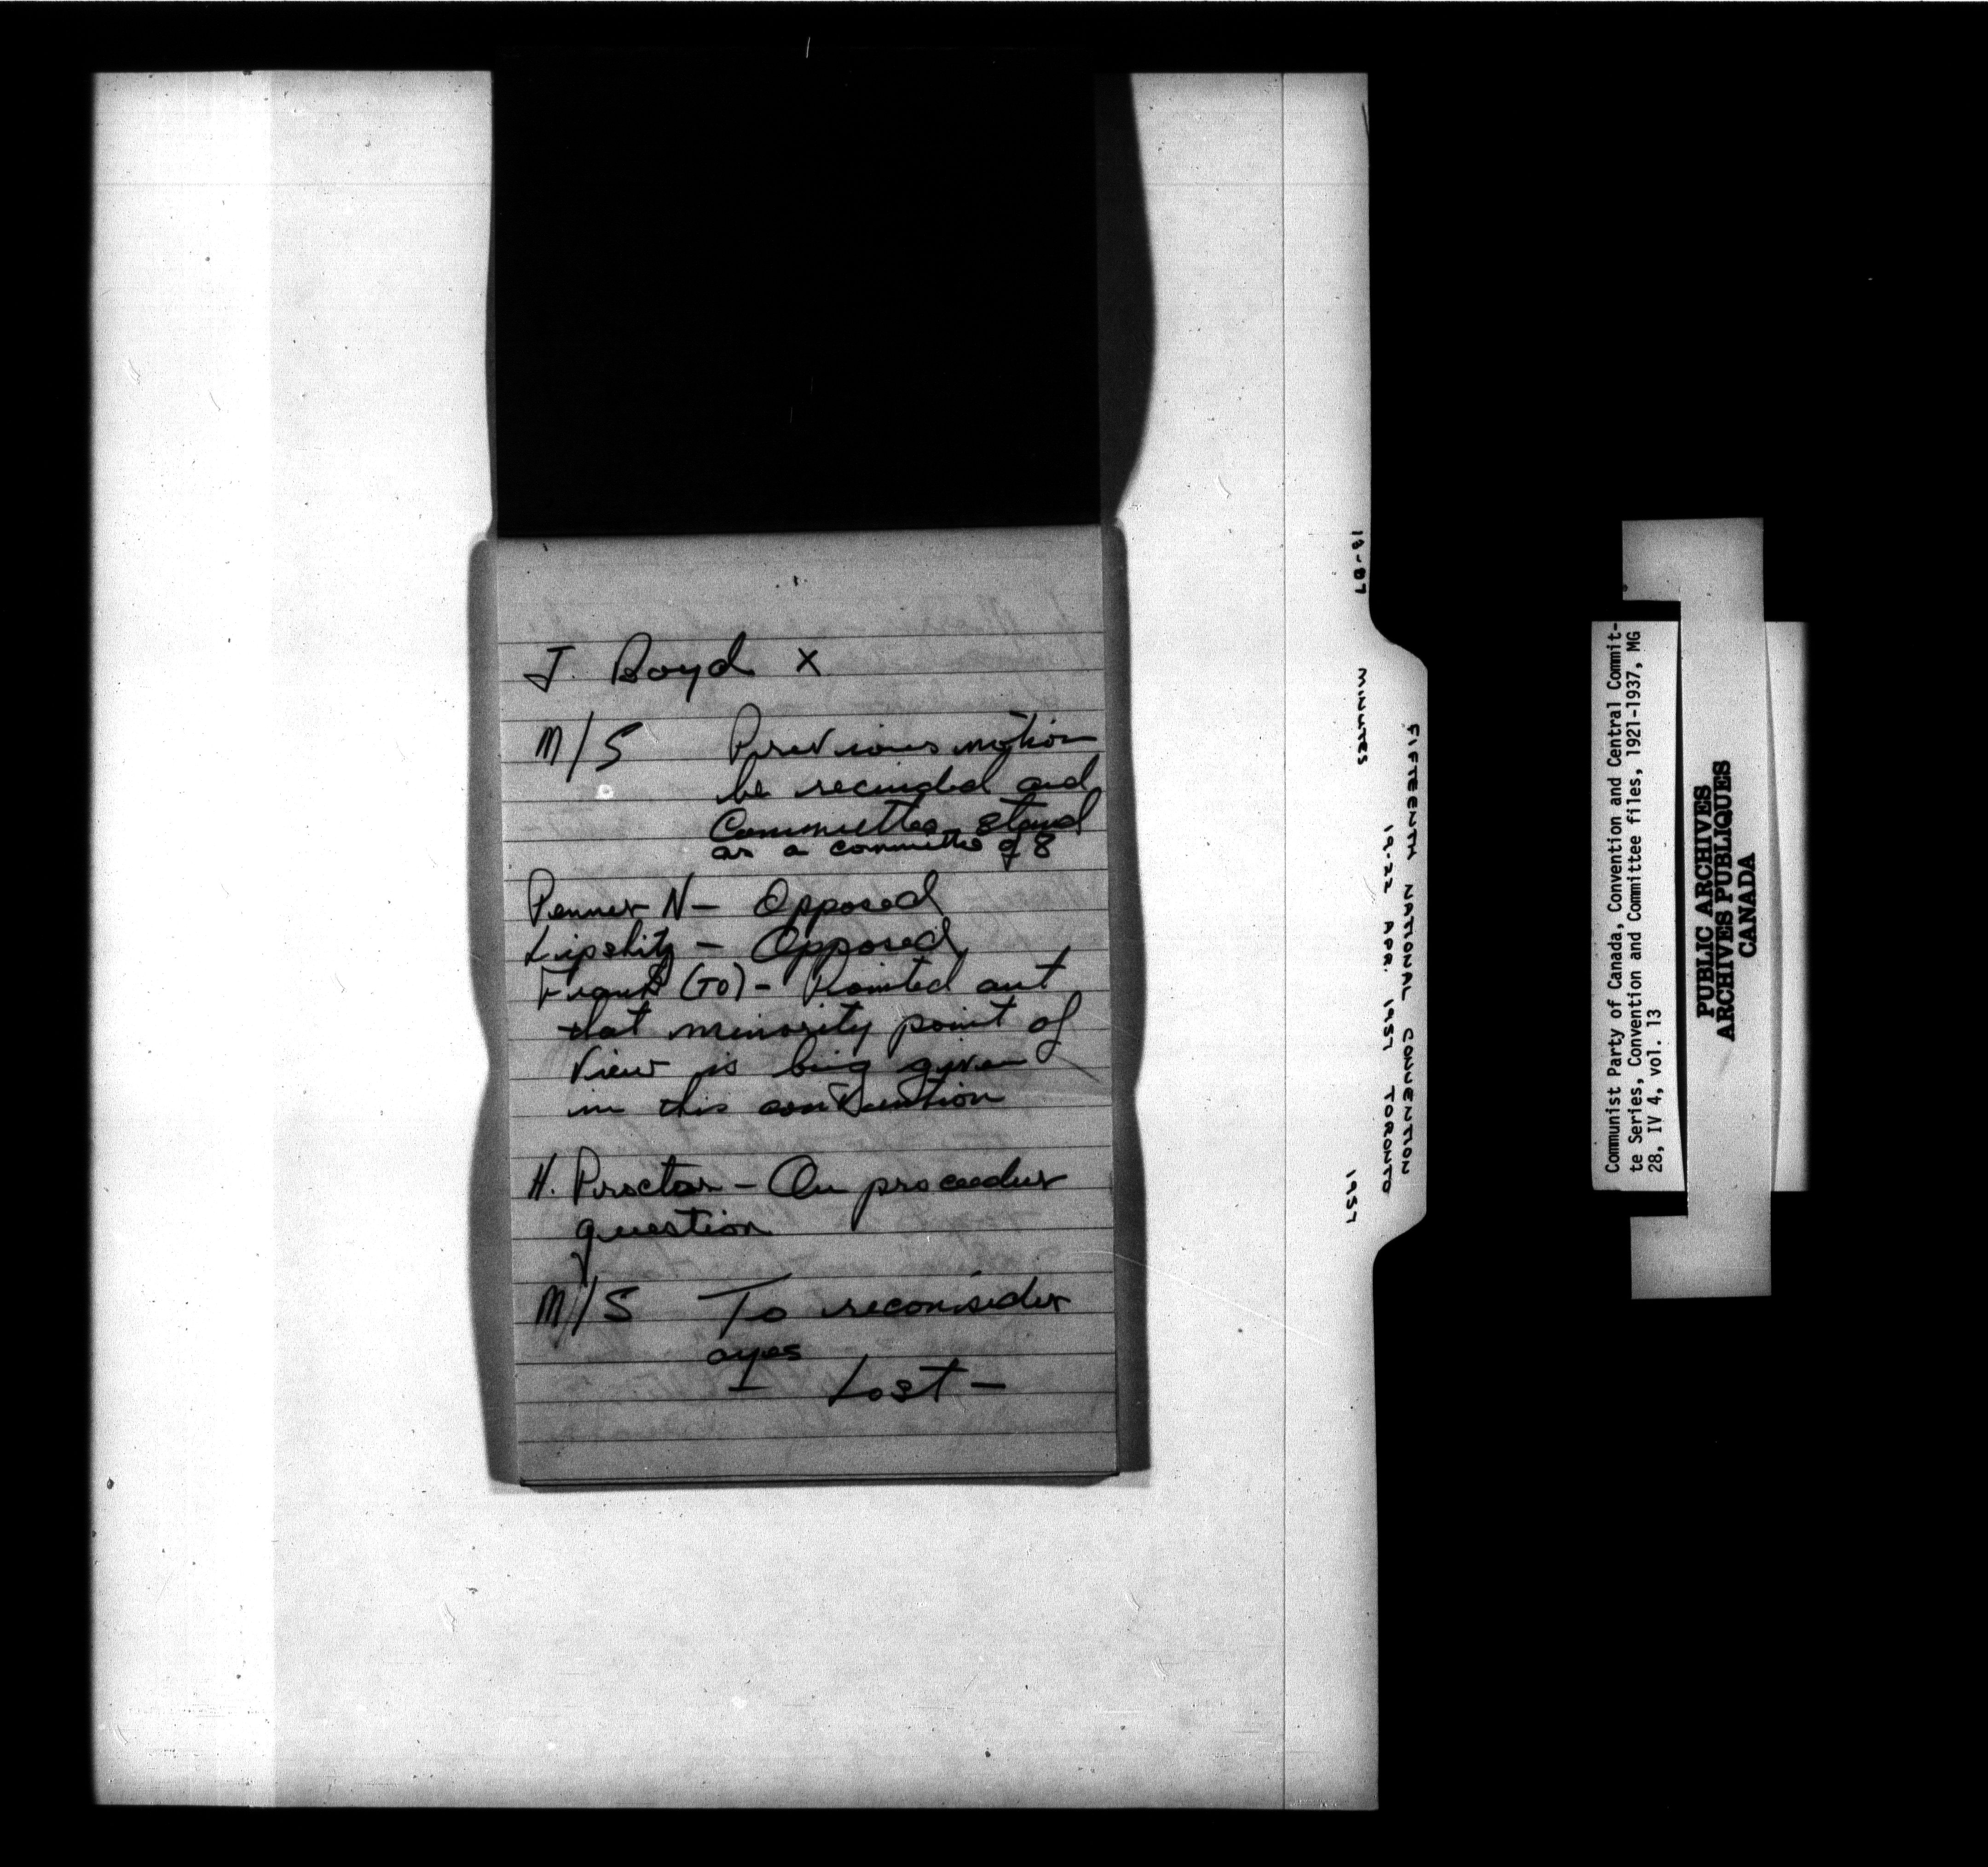 J. Boyd x
M/S Previous motion
be recinded and
Committee stand
as a committee of 8
Penner N - Opposed
Lipshitz - Opposed
Frank (TO) - Pointed out
that minority point of
View is being given
in this convention
H. Proctor - On proceedur
question
M/S To reconsider
ayes
Lost -
13-07 MINUTES 1957
19-22 APR. 1957 TORONTO
FIFTEENTH NATIONAL CONVENTION
Communist Party of Canada, Convention and Central Commit-
te Series, Convention and Committee files, 1921-1937, MG
28, IV 4, vol. 13
PUBLIC ARCHIVES
ARCHIVES PUBLIQUES
CANADA